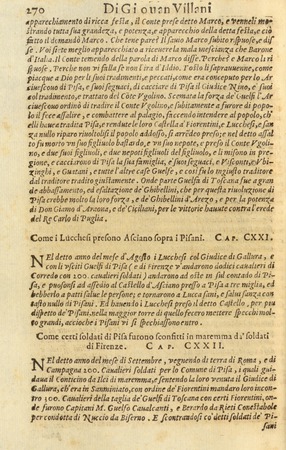 270 Di Giouan Villani
apparecchiamento di ricca festa, il Conte prese detto Marco, e vennelì mo-
strando tutta sua grandezza, e potenza, e apparecchio della detta festa, e ciò
fatto il domandò Marco. Che tene pare? il sauio Marco subito rispuose, e dis-
se. Voi siete meglio apparecchiato a riceuere la mala mescianza che Barone
d'Italia. Il Conte temendo della parola di Marco disse. Perche? e Marco li ri
spuose. Perche non vi falla se non l'ira d'Iddio.
piacque a Dio per li suoi tradimenti, e peccati, come era conceputo per lo Ar
ciuescouo di Pisa, e suoi seguaci, di cacciare di Pisa il Giudice Nino, e suoi
co' tradimento, e ordine del Conte Vgolino. Scemata la forza de' Guelfi, l'Ar
ciuescouo ordinò di tradire il conte Vgolino, e subitamente a furore di popo-
lo il fece assalire, e combattere al palagio, facendo intendere al popolo, ch'
elli hauea tradita Pisa, e rendute le loro castella a' Fiorentini, e Lucchesi, e san
za nullo riparo riuoltosi il popolo addosso, si arrèdeo preso; e nel detto assal
to fu morto vn suo figliuolo bastardo, e vn suo nepote, e preso il Conte Vgoli-
no, e due suoi figliuoli, e due nepoti figliuoli del figliuolo, e li misono in pre-
gione, e cacciarono di Pisa la sua famiglia, e suoi seguaci, e Visconti, e Vbi-
zinghi, e Guatani, e tutte l'altre case Guelfe, e così fu lo ingiusto traditore
dal traditore tradito giustamente. Onde parte Guelfa di Toscana hue a gran
de abbassamento, ed esaltazione de' Ghibellini, che per questa riuoluzione di
Pisa crebbe molto la loro forza, e de' Ghibellini d'Arezo, e per la potenza
di Don Giamo d'Araona, e de' Ciciliani, per le vittorie hauute contra l'erede
del Re Carlo di Puglia.
Come i Lucchesi presono Asciano sopra i Pisani. CAP. CXXI.
NEl detto anno del mese d'Agosto i Lucchesi col Giudice di Gallura, e
con li vsciti Guelfi di Pisa e di Firenze v' andarono dodici caualieri di
Corredo con 200. caualieri soldati) andarono ad oste in sul contado di Pi-
sa, e puosonsi ad assedio al Castello d'Asciano presso a Pisa a tre miglia, ed
hebberlo a patti salue le persone; e tornarono a Lucca sani, e salui senza con
tasto nullo di Pisani. Ed hauendo i Lucchesi preso il detto Castello, per piu
dispetto de' Pisani, nella maggiore torre di quello fecero mettere specchi mol-
to grandi, accioche i Pisani vi si specchiassono entro.
Come certi soldati di Pisa furono sconfitti in maremma da' soldati
di Firenze. CAP. CXXII.
NEl detto anno del mese di Settembre, vegnendo di terra di Roma, e di
Campagna 200. Caualieri soldati per lo Comune di Pisa, i quali gui-
daua il Conticino da Ilci di maremma, e sentendo la loro venuta il Giudice di
Gallura, ch'era in Sanminiato, con ordine de' Fiorentini mandaro loro incon-
tro 300. Caualieri della taglia de' Guelfi di Toscana con certi Fiorentini, on-
de furono Capitani M. Guelfo Caualcanti, e Berardo da Rieti Conestabole
per condotta di Nuccio da Biserno. E scontrandosi co' detti soldati de' Pi-
sani